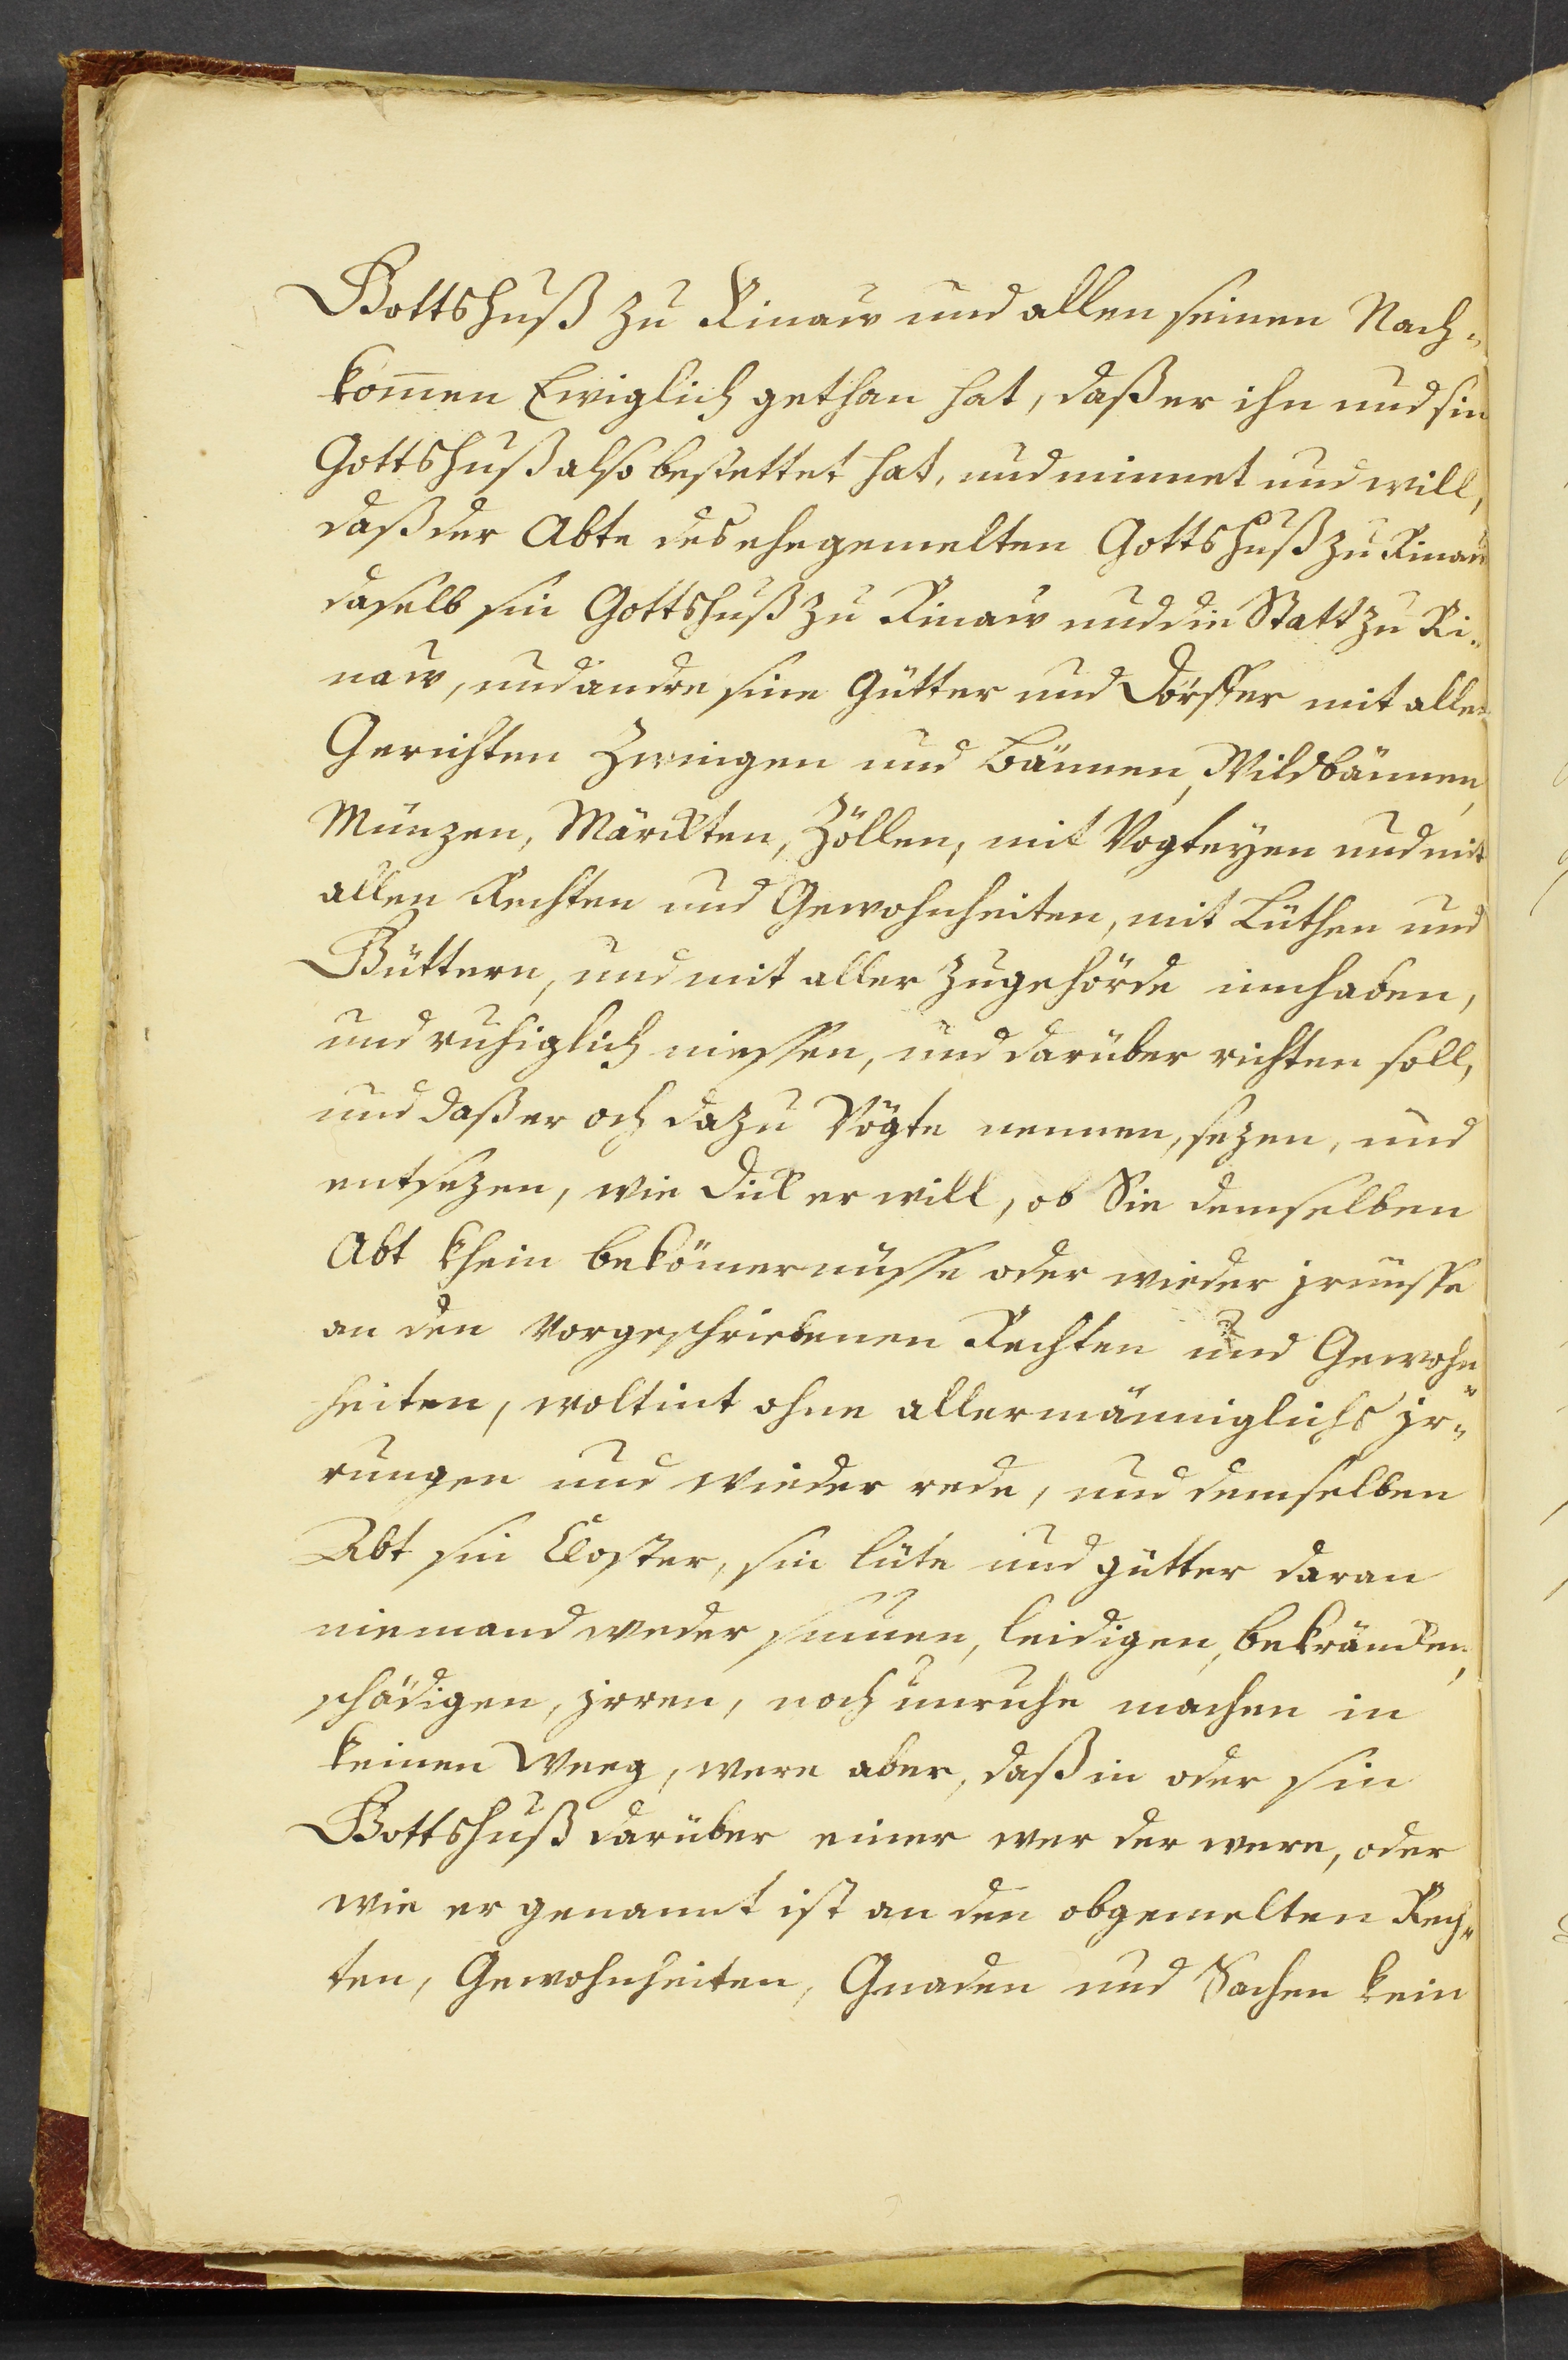 Gottshuß zu Rinauw und allen seinen Nach-
kom̅en Ewiglich gethan hat, daß er ihn und sin
Gottshuß also bestettet hat, und minnet und will,
daß der Abte des ehegemelten Gottshuß zu Rinauw
daselb sin Gottshuß zu Rinauw und die Statt zu Ri-
nauw, und andre sine Gütter und Dörffer mit allen
Gerichten Zwingen und Bännen, Wildbännen,
Münzen, Märckten, Zöllen, mit Vogteyen und mit
allen Rechten und Gewohnheiten, mit Lüthen und
Güttern, und mit aller Zugehörde innhaben,
und ruhiglich niessen, und darüber richten soll,
und daß er och dazu Vögte nemmen, sezen, und
entsezen, wie dick er will, ob Sie demselben
Abt khein bekömernüsse oder wieder jrnüsse
an den vorgeschriebenen Rechten und Gewohn-
heiten, woltint ohne allermänniglichs jr-
rungen und wieder rede, und demselben
Abt sin Closter, sin lüte und gütter daran
niemand weder sumen, leidigen, bekräncken,
schädigen, jrren, noch unruhe machen in
keinen Weeg, were aber, daß in oder sin
Gottshuß darüber einer wer der were, oder
wie er genannt ist an den obgemelten Rech-
ten, Gewohnheiten, Gnaden und Sachen kein